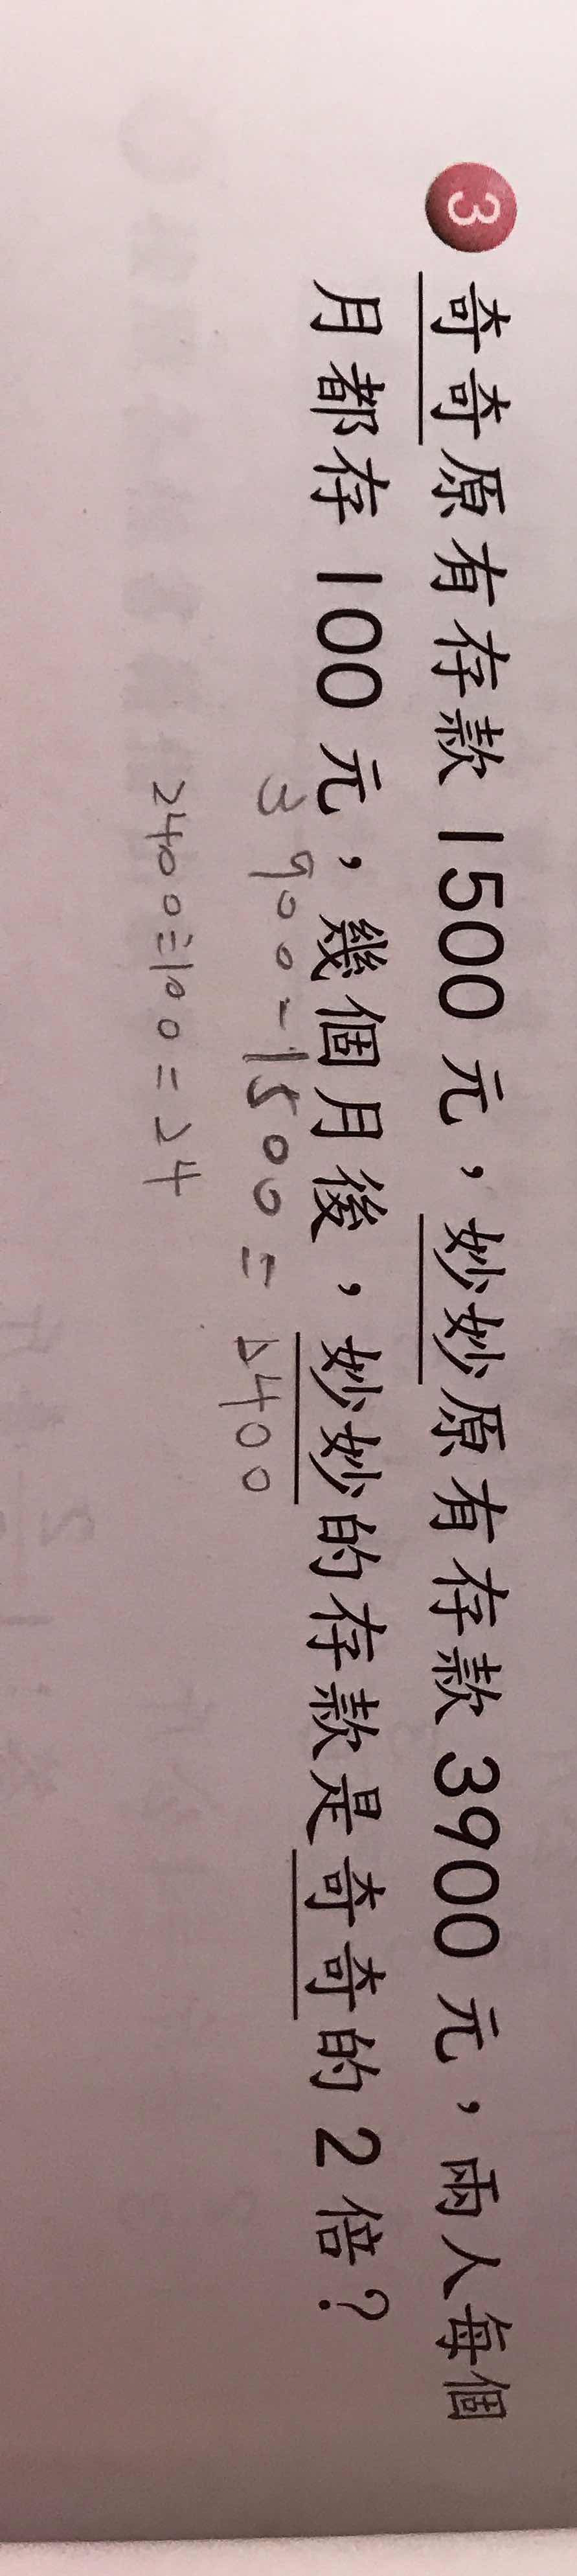 3 奇奇原有存款 1500 元，妙妙原有存款 3900 元，兩人每個
月都存 100 元，幾個月後，妙妙的存款是奇奇的 2 倍？
3900-1500=2400
2400÷100=24